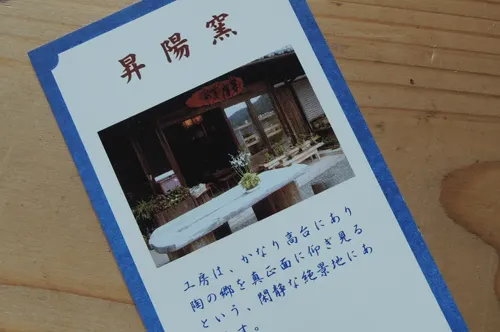 昇陽窯
工房は、かなり高台にあり
陶の郷を真正面に仰ぎ見る
という、閑静な絶景地にあ
す。